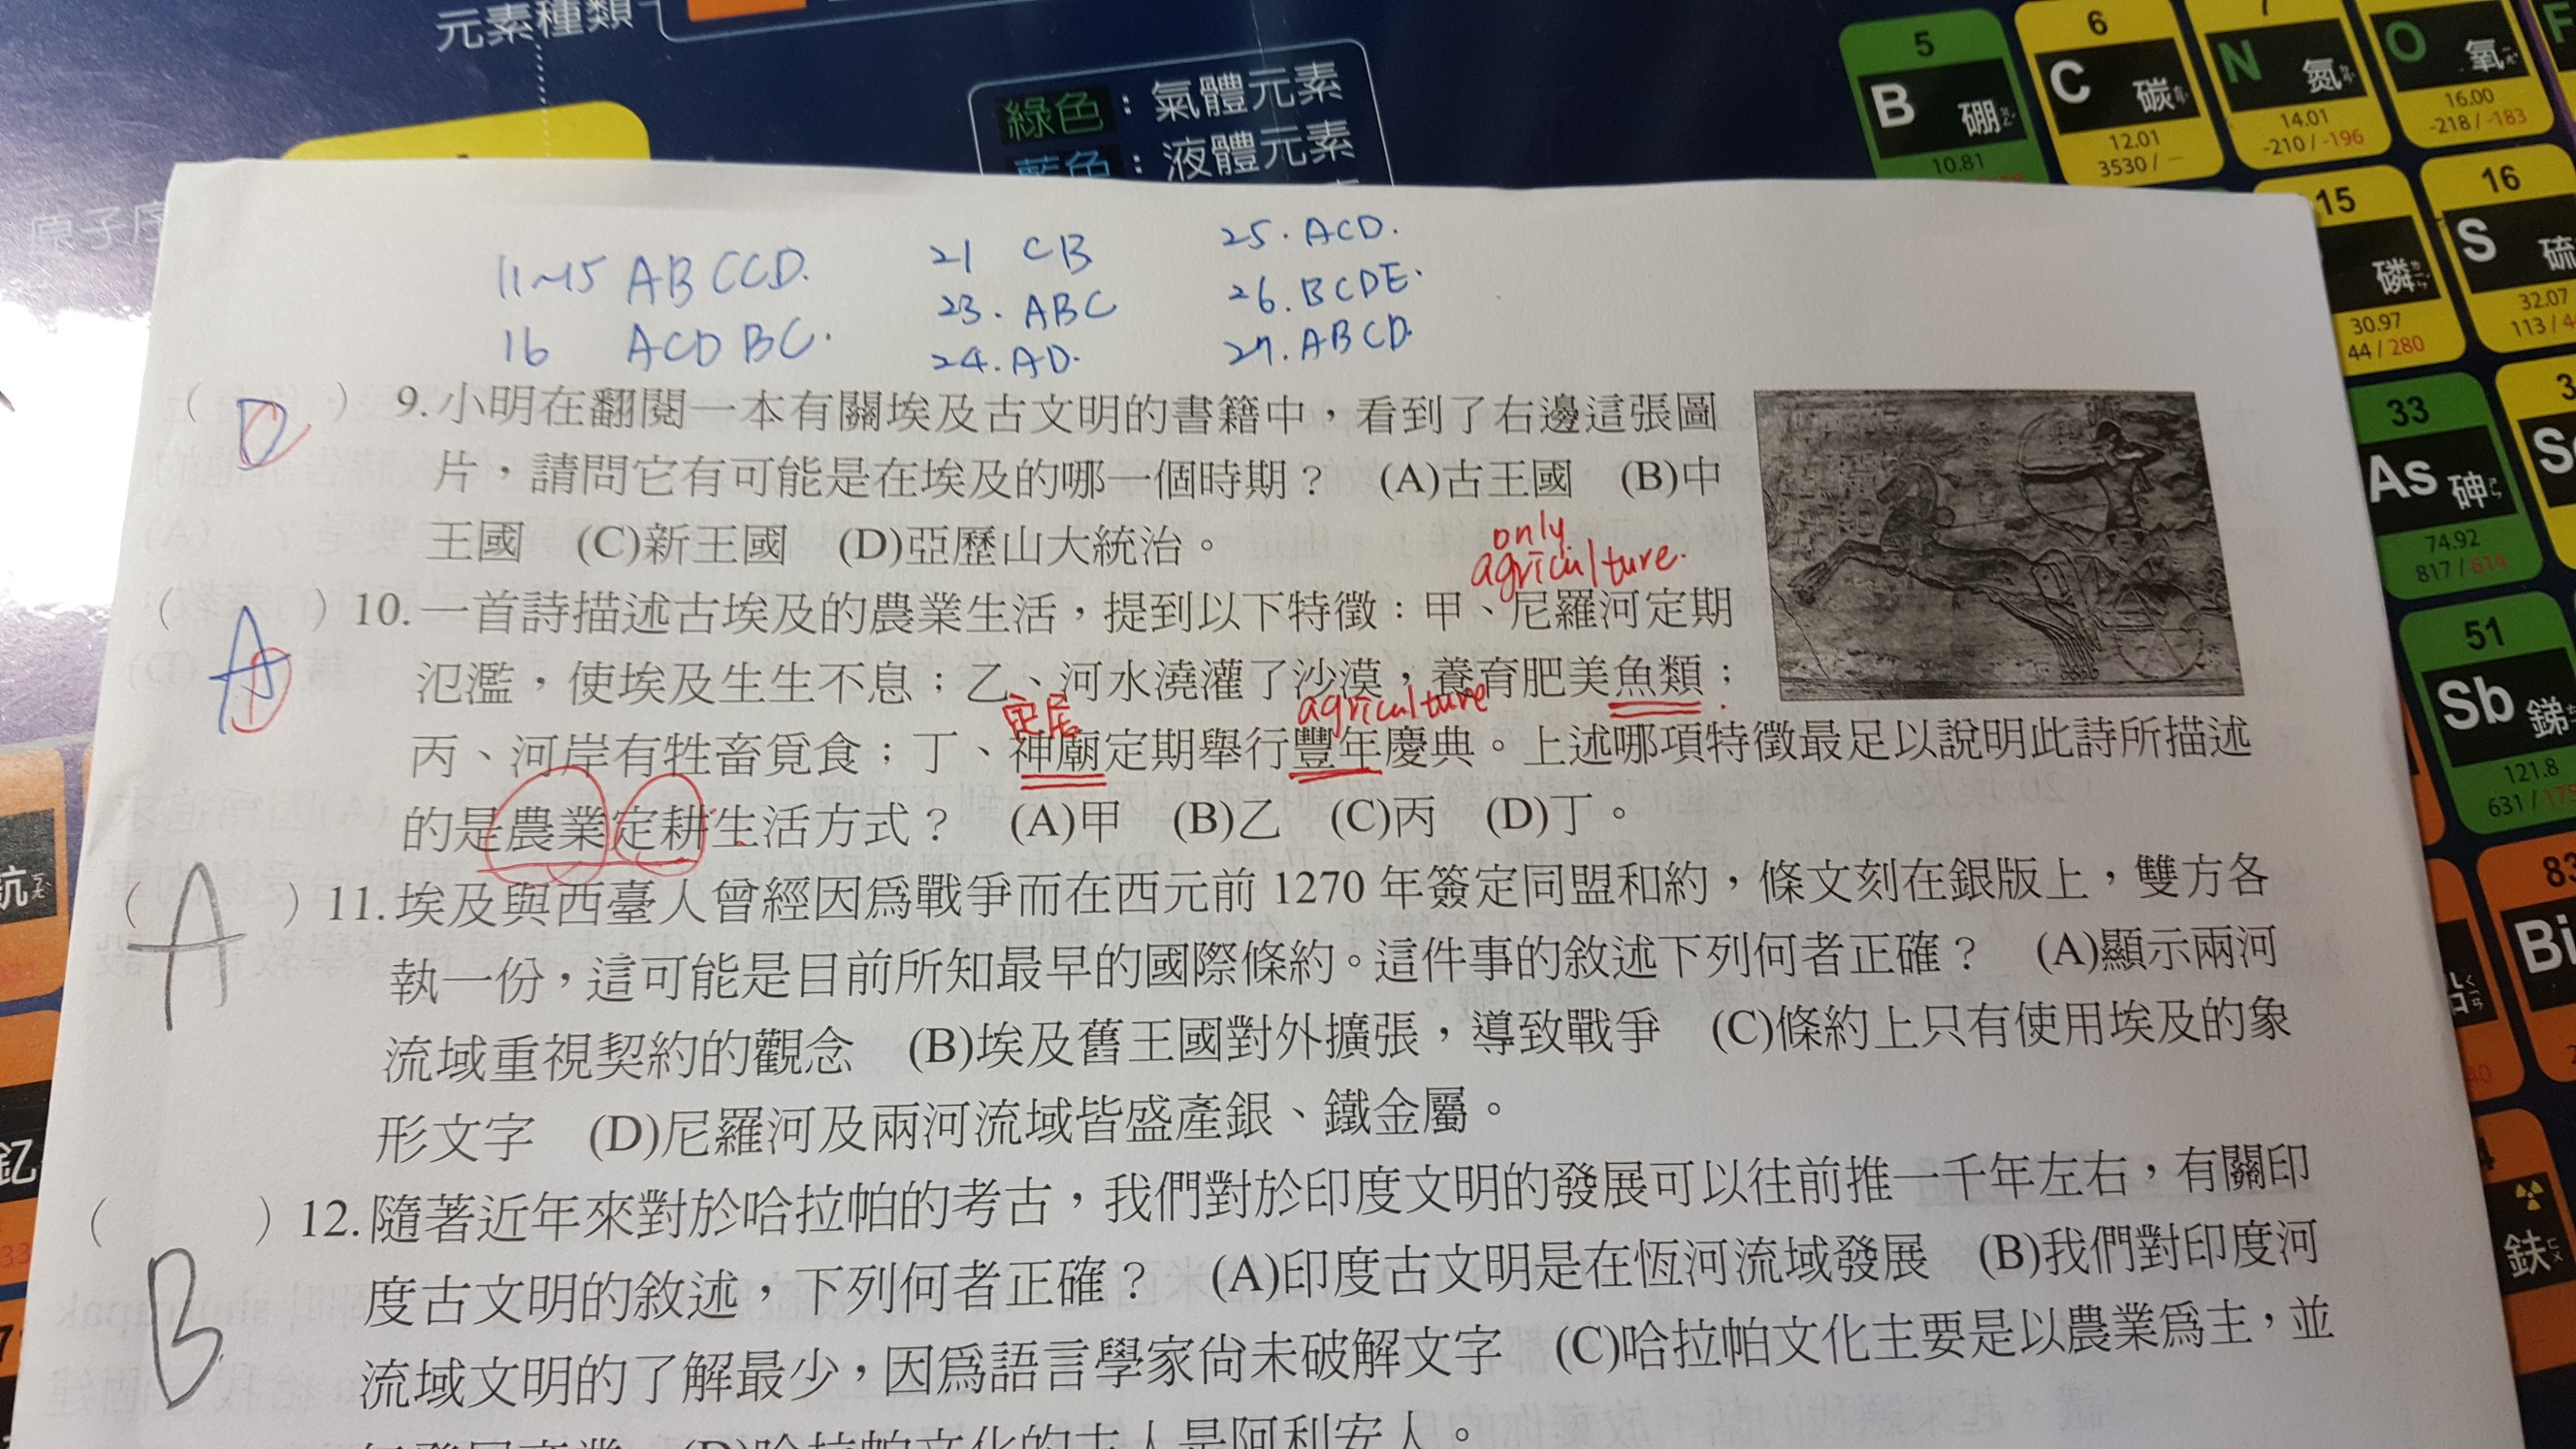 元素種類
綠色：氣體元素
藍色：液體元素
5
B 硼
10.81
6
C 碳
12.01
3530 / —
7
N 氮
14.01
-210 / -196
O 氧
16.00
-218 / -183
F
15
磷
30.97
44 / 280
16
S 硫
32.07
113 / 4
33
As 砷
74.92
817 / 614
51
Sb 銻
121.8
631 /
83
Bi
鈇
釔
11~15 ABCCD.
16 ACDBC.
21 CB
23. ABC
24. AD.
25. ACD.
26. BCDE.
27. ABCD.
( D ) 9.小明在翻閱一本有關埃及古文明的書籍中，看到了右邊這張圖
片，請問它有可能是在埃及的哪一個時期？ (A)古王國 (B)中
王國 (C)新王國 (D)亞歷山大統治。
only
agriculture.
( A ) 10.一首詩描述古埃及的農業生活，提到以下特徵：甲、尼羅河定期
D
氾濫，使埃及生生不息；乙、河水澆灌了沙漠，養育肥美魚類；
定居 agriculture
丙、河岸有牲畜覓食；丁、神廟定期舉行豐年慶典。上述哪項特徵最足以說明此詩所描述
的是農業定耕生活方式？ (A)甲 (B)乙 (C)丙 (D)丁。
( A ) 11.埃及與西臺人曾經因為戰爭而在西元前 1270 年簽定同盟和約，條文刻在銀版上，雙方各
執一份，這可能是目前所知最早的國際條約。這件事的敘述下列何者正確？ (A)顯示兩河
流域重視契約的觀念 (B)埃及舊王國對外擴張，導致戰爭 (C)條約上只有使用埃及的象
形文字 (D)尼羅河及兩河流域皆盛產銀、鐵金屬。
( B ) 12.隨著近年來對於哈拉帕的考古，我們對於印度文明的發展可以往前推一千年左右，有關印
度古文明的敘述，下列何者正確？ (A)印度古文明是在恆河流域發展 (B)我們對印度河
流域文明的了解最少，因為語言學家尚未破解文字 (C)哈拉帕文化主要是以農業為主，並
(D)哈拉帕文化的主人是阿利安人。